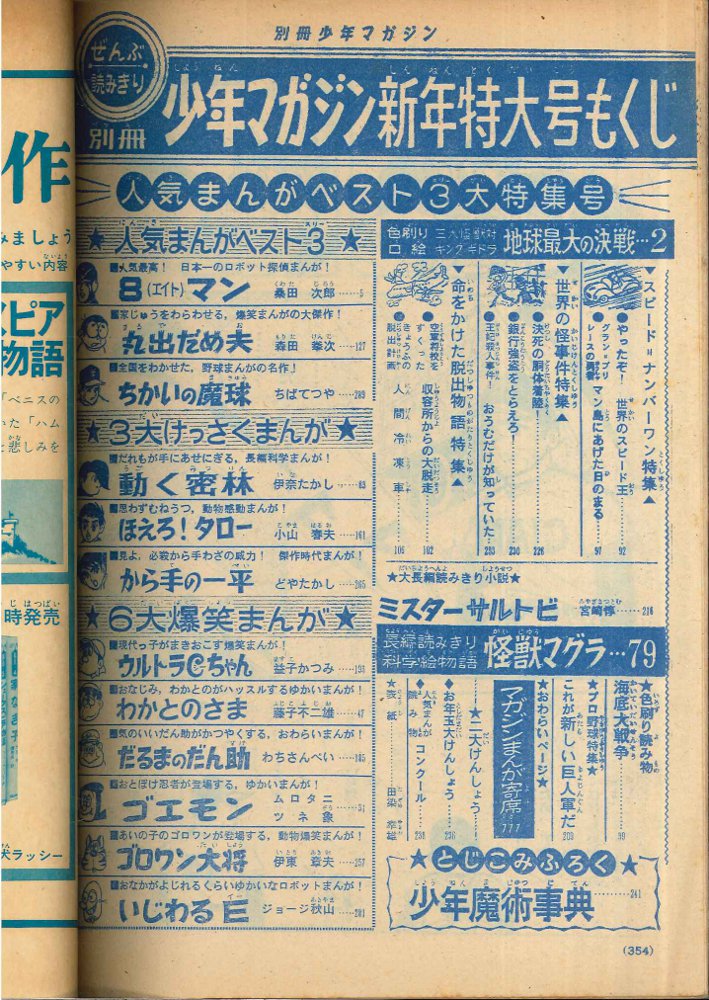 別冊少年マガジン
ぜんぶ
読みきり
別冊
少年マガジン新年特大号もくじ
人気まんがベスト3大特集号
★人気まんがベスト3★
■人気最高! 日本一のロボット探偵まんが!
8(エイト)マン 桑田次郎……5
■家じゅうをわらわせる,爆笑まんがの大傑作!
丸出だめ夫 森田拳次……127
■全国をわかせた,野球まんがの名作!
ちかいの魔球 ちばてつや……289
★3大けっさくまんが★
■だれもが手にあせにぎる,長編科学まんが!
動く密林 伊奈たかし……83
■思わずむねうつ,動物感動まんが!
ほえろ!タロー 小山春夫……161
■見よ,必殺から手わざの威力! 傑作時代まんが!
から手の一平 どやたかし……305
★6大爆笑まんが★
■現代っ子がまきおこす爆笑まんが!
ウルトラCちゃん 益子かつみ
■おなじみ,わかとのがハッスルするゆかいまんが!
わかとのさま 藤子不二雄……47
■気のいいだん助がかつやくする,おわらいまんが!
だるまのだん助 わちさんぺい……185
■おとぼけ忍者が登場する,ゆかいまんが!
ゴエモン ムロタニツネ象……31
■あいの子のゴロワンが登場する,動物爆笑まんが!
ゴロワン大将 伊東章夫……257
■おなかがよじれるくらいゆかいなロボットまんが!
いじわるE ジョージ秋山……281
色刷り口絵 三大怪獣対キングギドラ 地球最大の決戦…2
▲スピード=ナンバーワン特集▲
●やったぞ! 世界のスピード王……92
●グラン=プリレースの勇者 マン島にあげた日のまる……97
▲世界の怪事件特集▲
●決死の胴体着陸!……226
●銀行強盗をとらえろ!……230
●王妃殺人事件! おうむだけが知っていた……233
▲命をかけた脱出物語特集▲
●空軍将校をすくった 収容所からの大脱走……102
●きょうふの脱出計画 人間冷凍車……106
★大長編読みきり小説★
ミスターサルトビ 宮崎惇……216
長編読みきり科学絵物語 怪獣マグラ…79
★色刷り読み物
海底大戦争……99
★プロ野球特集★
これが新しい巨人軍だ……209
★おわらいページ★
マガジンまんが寄席……111
★二大けんしょう★
◆お年玉大けんしょう……236
◆人気まんが読み物 コンクール……238
★表紙……田梁幸雄
★とじこみふろく★
少年魔術事典……241
(354)
作
みましょう
やすい内容
スピア
物語
「ベニスの
いた「ハム
と悲しみを
時発売
犬ラッシー